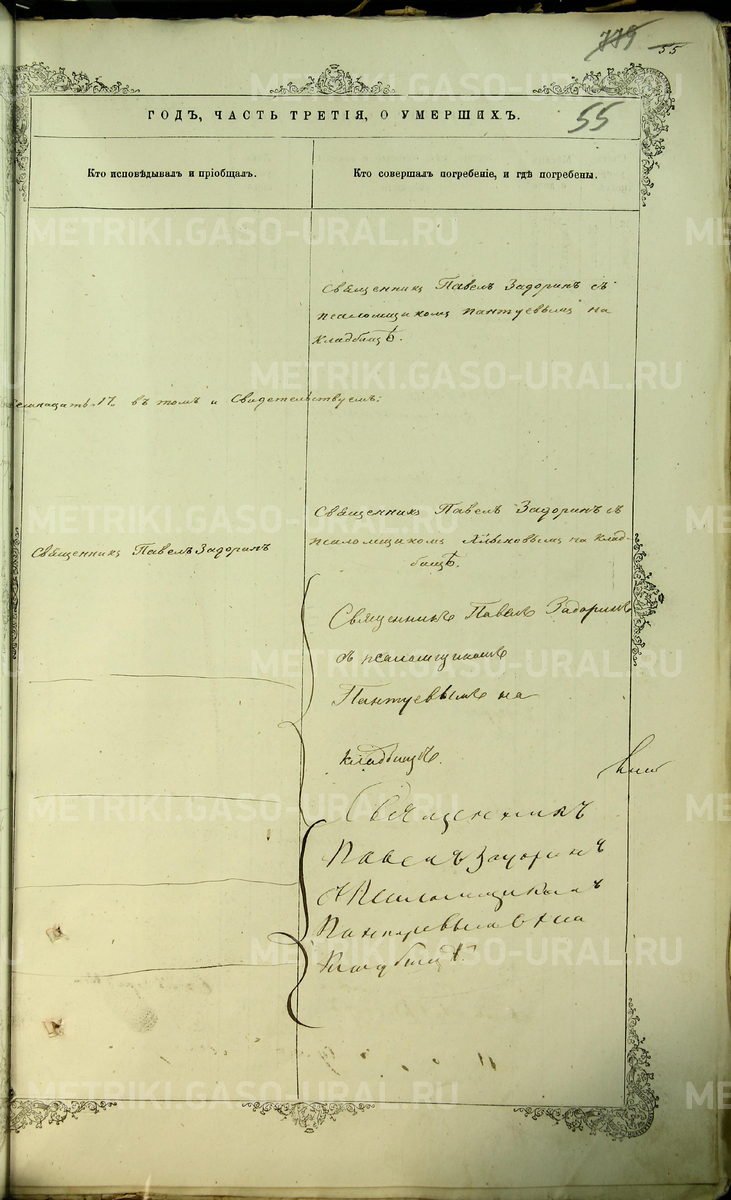 779
55
55
ГОДЪ, ЧАСТЬ ТРЕТІЯ, О УМЕРШИХЪ.
Кто исповѣдывалъ и пріобщалъ.
Кто совершалъ погребеніе, и гдѣ погребены.
Священникъ Павелъ Задоринъ съ
псаломщикомъ Пантуевымъ на
кладбищѣ.
17 въ томъ и свидетельствуемъ:
Священникъ Павелъ Задоринъ
Священникъ Павелъ Задоринъ съ
псаломщикомъ на клад-
бищѣ.
Священникъ Павелъ Задоринъ
съ псаломщикомъ
Пантуевымъ на
кладбищѣ.
Священникъ
Павелъ Задоринъ
съ Псаломщикомъ
Пантуевымъ на
Кладбищѣ
METRIKI.GASO-URAL.RU